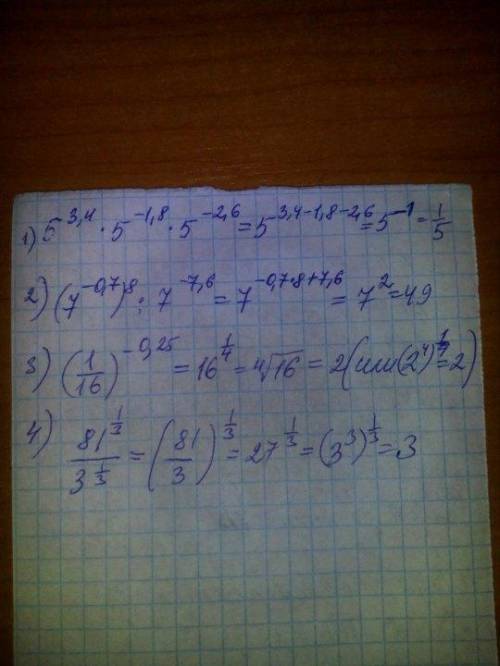 1) 5^3,4 · 5^-1,8 · 5^-2,6 = 5^3,4-1,8-2,6 = 5^-1 = 1/5
2) (7^-0,7)^8 : 7^-7,6 = 7^-0,7·8+7,6 = 7^2 = 49
3) (1/16)^-0,25 = 16^1/4 = ⁴√16 = 2 (или (2^4)^1/4 = 2)
4) 81^1/3 / 3^1/3 = (81/3)^1/3 = 27^1/3 = (3^3)^1/3 = 3